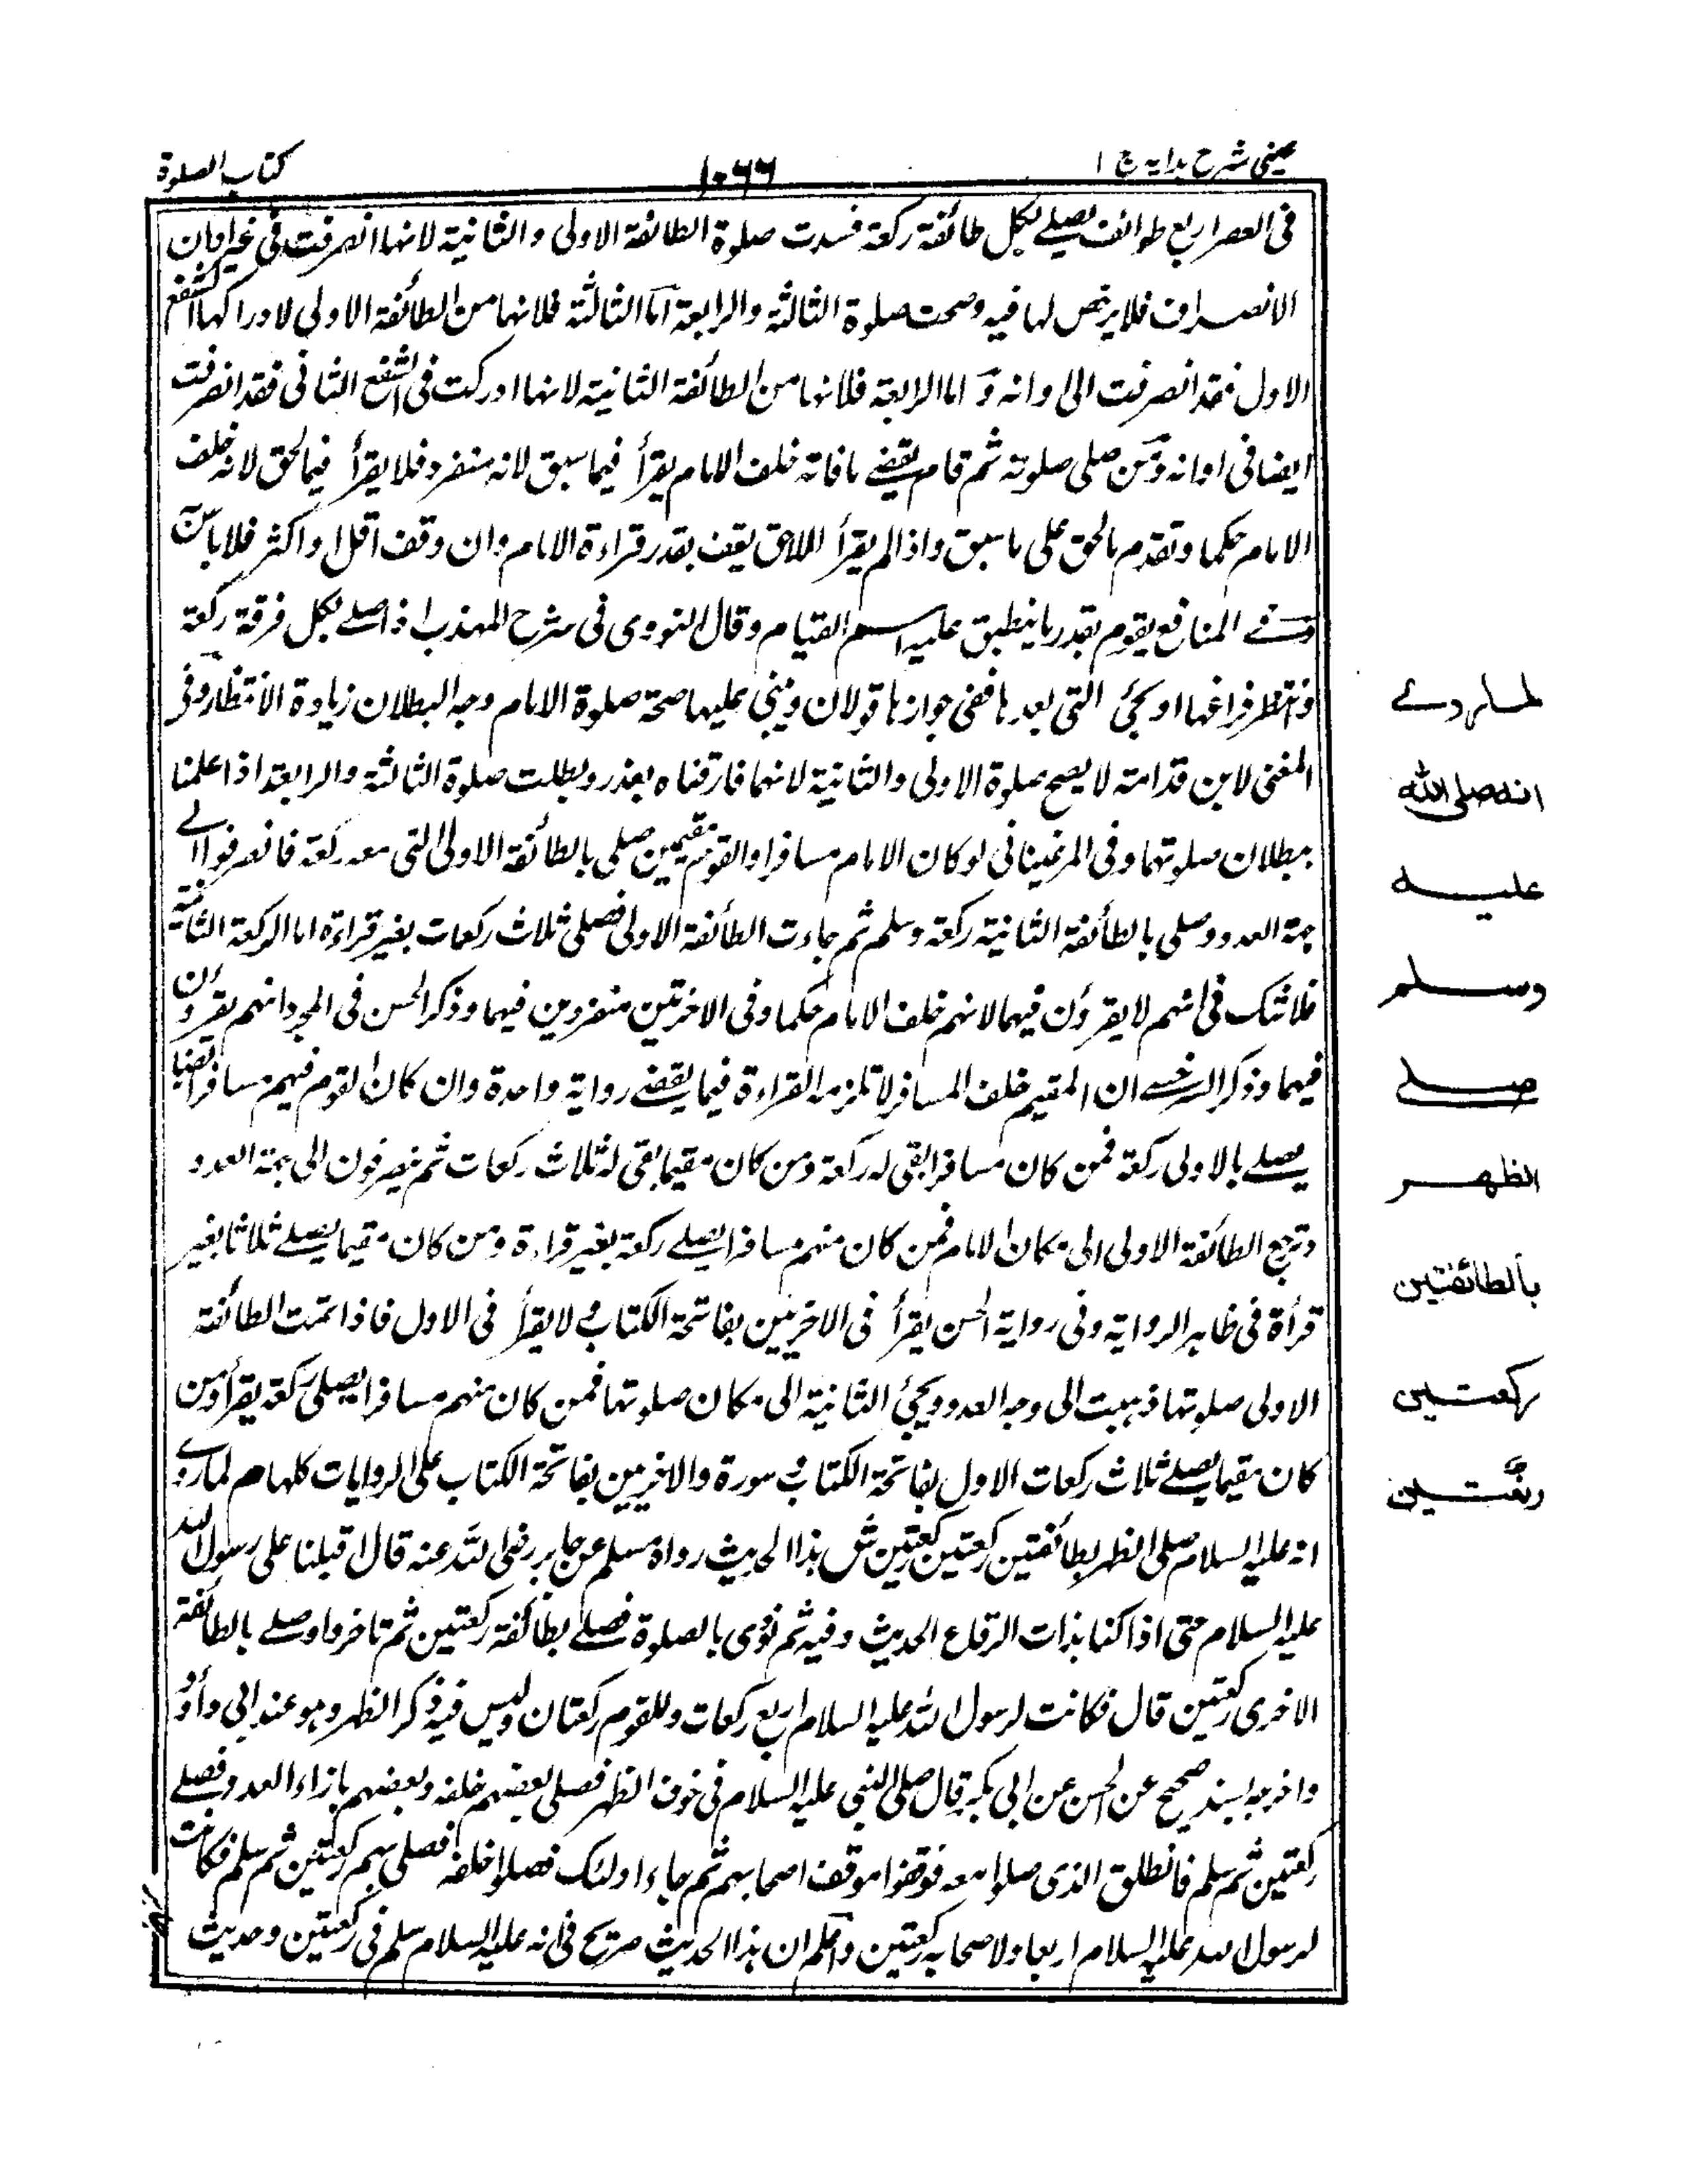 عینی شرح ہدایہ ج ۱
۱۰۶۶
کتاب الصلوة
فی العصر اربع طوائف یصلے بکل طائفة رکعة فسدت صلوة الطائفة الاولی والثانیة لانها انصرفت فی غیر اوان
الانصراف فلا یرخص لها فیه وصحت صلوة الثالثة والرابعة اما الثالثة فلانها من الطائفة الاولی لادراکها الشفع
الاول فقد انصرفت الی اوانه و اما الرابعة فلانها من الطائفة الثانیة لانها ادرکت فی الشفع الثانی فقد انصرفت
ایضا فی اوانه ومن صلی صلوته ثم قام یقضے ما فاته خلف الامام یقرأ فیما سبق لانه منفرد فلا یقرأ فیما لحق لانه خلف
الامام حکما وتقدم ما لحق علی ما سبق واذا لم یقرأ اللاحق یقف بقدر قراءة الامام وان وقف اقل او اکثر فلا باس
وفے المنافع یقوم بقدر ما ینطبق علیه اسم القیام وقال النووی فی شرح المهذب اذا صلے بکل فرقة رکعة
وانتظر فراغها او یجئ التی بعدها ففی جوازها قولان ویبنی علیها صحة صلوة الامام وجه البطلان زیادة الانتظار وفی
المغنی لابن قدامة لا یصح صلوة الاولی والثانیة لانهما فارقناه بعذر وبطلت صلوة الثالثة والرابعة اذا علمنا
ببطلان صلوتهما وفی المرغینانی لو کان الامام مسافرا والقوم مقیمین صلی بالطائفة الاولی التی معه رکعة فانصرفوا الے
جهة العدو وصلی بالطائفة الثانیة رکعة وسلم ثم جاءت الطائفة الاولی فصلی ثلاث رکعات بغیر قراءة اما الرکعة الثانیة
فلا شک فی انهم لا یقرؤن فیها لانهم خلف الامام حکما وفی الاخرتین منفردین فیهما وذکر الحسن فی المجرد انهم یقرؤن
فیهما وذکر السرخسے ان المقیم خلف المسافر لا تلزمه القراءة فیما یقضے روایة واحدة وان کان القوم فیهم مسافر ایضا
یصلے بالاولی رکعة فمن کان مسافرا بقی له رکعة ومن کان مقیما بقی له ثلاث رکعات ثم ینصرفون الی جهة العدو
وترجع الطائفة الاولی الی مکان الامام فمن کان منهم مسافرا یصلے رکعة بغیر قراءة ومن کان مقیما یصلے ثلاثا بغیر
قرأة فی ظاهر الروایة وفی روایة الحسن یقرأ فی الاخریین بفاتحة الکتاب لا یقرأ فی الاول فاذا تمت الطائفة
الاولی صلوتها ذهبت الی وجه العدو ویجئ الثانیة الی مکان صلوتها فمن کان منهم مسافرا یصلی رکعة یقرأ ومن
کان مقیما یصلے ثلاث رکعات الاول بفاتحة الکتاب وسورة والاخریین بفاتحة الکتاب علی الروایات کلها م لما روے
انه علیه السلام صلی الظهر بطائفتین رکعتین رکعتین ش هذا الحدیث رواه مسلم عن جابر رضی الله عنه قال اقبلنا علی رسول الله
علیه السلام حتی اذا کنا بذات الرقاع الحدیث وفیه ثم نودی بالصلوة فصلے بطائفة رکعتین ثم تاخروا وصلے بالطائفة
الاخری رکعتین قال فکانت لرسول الله علیه السلام اربع رکعات وللقوم رکعتان ولیس فیه ذکر الظهر وهو عند ابی داؤد
واخرجه بسند صحیح عن الحسن عن ابی بکرة قال صلی النبی علیه السلام فی خوف الظهر فصلی بعضهم خلفه وبعضهم بازاء العدو فصلے
رکعتین ثم سلم فانطلق الذی صلوا معه فوقفوا موقف اصحابهم ثم جاء اولئک فصلوا خلفه فصلی بهم رکعتین ثم سلم فکانت
لرسول الله علیه السلام اربعا ولاصحابه رکعتین واعلم ان هذا الحدیث صریح فی انه علیه السلام سلم فی رکعتین وحدیث
لما روے
انه صلی الله
علیه
وسلم
صلے
الظهر
بالطائفتین
رکعتین
رکعتین